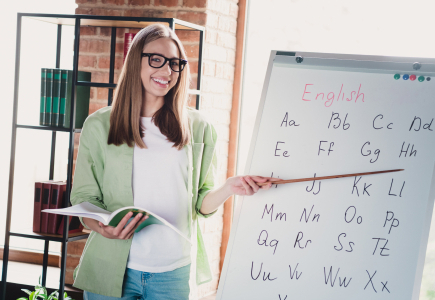 English
Aa Bb Cc Dd
Ee Ff Gg Hh
Jj Kk Ll
Mm Nn Oo Pp
Qq Rr Ss Tz
Uu Vv Ww Xx